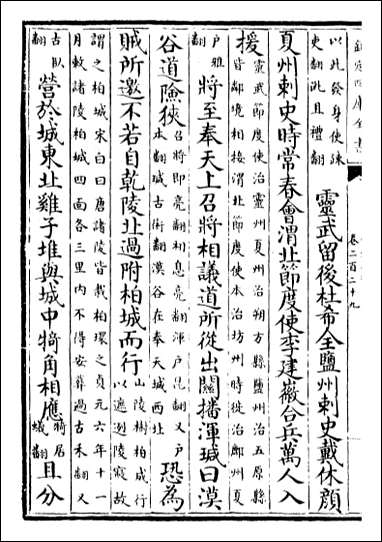 欽定四庫全書
卷二百二十九
以此發身使疎
吏翻趾且禮翻
靈武留後杜希全鹽州刺史戴休顔
夏州刺史時常春會渭北節度使李建徽合兵萬人入
援
靈武節度使治靈州夏州治朔方縣鹽州治五原縣
皆鄰境相接渭北節度使本治坊州時徙治鄜州夏
户雅
翻
將至奉天上召將相議道所從出關播渾瑊曰漠
谷道險狹
召將即亮翻相息亮翻渾户昆翻又户
本翻瑊古銜翻漠谷在奉天城西北
恐為
賊所邀不若自乾陵北過附柏城而行
山陵樹柏成行
以遮迾陵寢故
謂之柏城宋白曰唐諸陵皆栽柏環之貞元六年十一
月敕諸陵柏城四面各三里内不得安葬過古禾翻又
古臥
翻
營於城東北雞子堆與城中犄角相應
犄居
蟻翻
且分